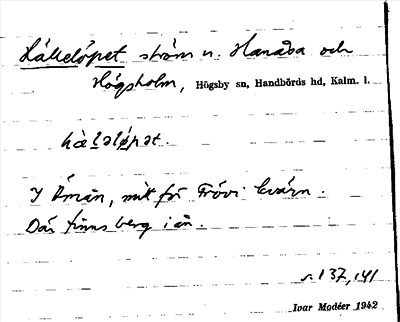 Hällelöpet ström n. Hanåsa och
Högsholm, Högsby sn, Handbörds hd, Kalm. l.
hæ̀lalǿpat.
I Åmån, mitt för Frövi kvarn.
Där finns berg i ån.
s. 137, 141
Ivar Modéer 1942